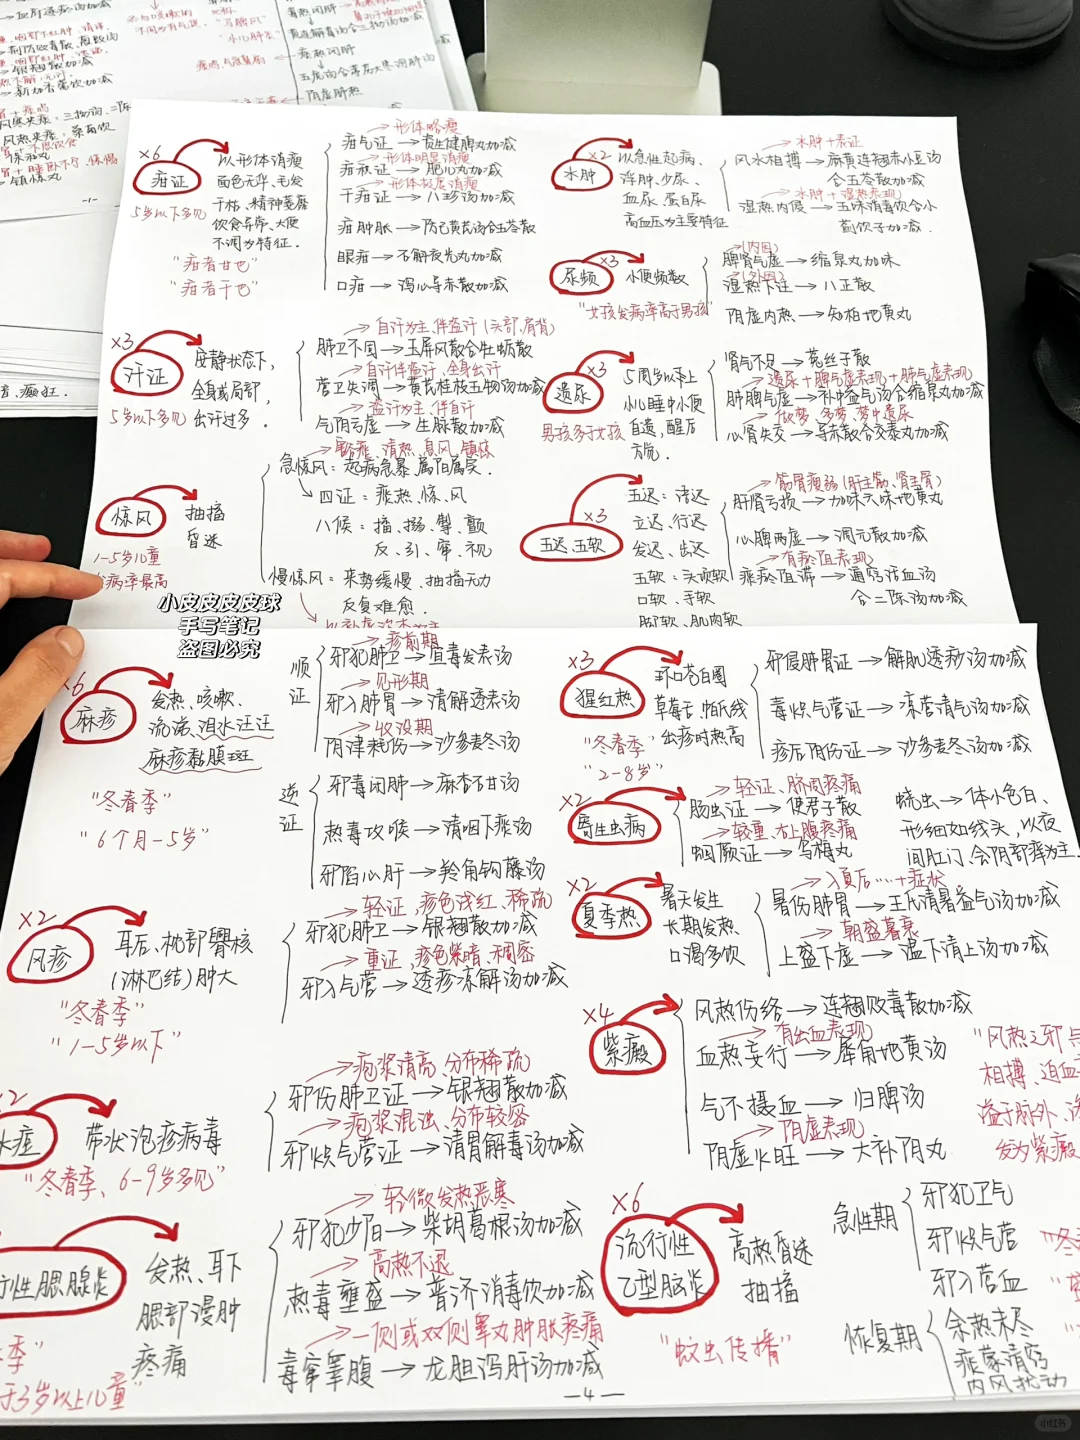 ×6
疳证
5岁以下多见
以形体消瘦
面色无华、毛发
干枯、精神萎靡
饮食异常、大便
不调为特征.
"疳者甘也"
"疳者干也"
形体略瘦
疳气证→资生健脾丸加减
形体明显消瘦
疳积证→肥儿丸加减
形体极度消瘦
干疳证→八珍汤加减
疳肿胀→防己黄芪汤合五苓散
眼疳→石斛夜光丸加减
口疳→泻心导赤散加减
×3
汗证
5岁以下多见
安静状态下,
全身或局部,
出汗过多.
自汗为主,伴盗汗(头部,肩背)
肺卫不固→玉屏风散合牡蛎散
自汗伴盗汗,全身出汗
营卫失调→黄芪桂枝五物汤加减
盗汗为主,伴自汗
气阴亏虚→生脉散加减
惊风
1-5岁儿童
病率最高
抽搐
昏迷
豁痰、清热、息风、镇惊
急惊风:起病急暴、属阳属实.
四证:痰、热、惊、风
八候:搐、搦、掣、颤
反、引、窜、视
慢惊风:来势缓慢、抽搐无力
反复难愈.
×2
水肿
以急性起病、
浮肿、少尿、
血尿、蛋白尿
高血压为主要特征
水肿+表证
风水相搏→麻黄连翘赤小豆汤
合五苓散加减
水肿+湿热表现
湿热内侵→五味消毒饮合小
蓟饮子加减.
×3
尿频
小便频数
"女孩发病率高于男孩"
(内因)
脾肾气虚→缩泉丸加味
(外因)
湿热下注→八正散
阴虚内热→知柏地黄丸
×3
遗尿
男孩多于女孩
5周岁以上
小儿睡中小便
自遗,醒后
方觉.
肾气不足→菟丝子散
遗尿+脾气虚表现+肺气虚表现
肺脾气虚→补中益气汤合缩泉丸加减
做梦、多梦、梦中遗尿
心肾失交→导赤散合交泰丸加减
×3
五迟、五软
五迟:语迟
立迟、行迟
发迟、齿迟
五软:头项软
口软、手软
脚软、肌肉软
筋骨痿弱(肝主筋、肾主骨)
肝肾亏损→加味六味地黄丸
心脾两虚→调元散加减
有痰阻表现
痰瘀阻滞→通窍活血汤
合二陈汤加减
小皮皮皮皮球
手写笔记
盗图必究
×6
麻疹
发热、咳嗽、
流涕、泪水汪汪
麻疹黏膜斑
"冬春季"
"6个月-5岁"
顺证
疹前期
邪犯肺卫→宣毒发表汤
见形期
邪入肺胃→清解透表汤
收没期
阴津耗伤→沙参麦冬汤
逆证
邪毒闭肺→麻杏石甘汤
热毒攻喉→清咽下痰汤
邪陷心肝→羚角钩藤汤
×2
风疹
耳后、枕部臖核
(淋巴结)肿大
"冬春季"
"1-5岁以下"
轻证,疹色浅红、稀疏
邪犯肺卫→银翘散加减
重证,疹色紫暗、稠密
邪入气营→透疹凉解汤加减
带状疱疹病毒
"冬春季、6-9岁多见"
疱浆清亮、分布稀疏
邪伤肺卫证→银翘散加减
疱浆混浊、分布较密
邪炽气营证→清胃解毒汤加减
行性腮腺炎
发热、耳下
腮部漫肿
疼痛
季"
于3岁以上儿童"
轻微发热恶寒
邪犯少阳→柴胡葛根汤加减
高热不退
热毒壅盛→普济消毒饮加减
一侧或双侧睾丸肿胀疼痛
毒窜睾腹→龙胆泻肝汤加减
×3
猩红热
"冬春季"
"2-8岁"
环口苍白圈
草莓舌、帕氏线
出疹时热高
邪侵肺胃证→解肌透痧汤加减
毒炽气营证→凉营清气汤加减
疹后阴伤证→沙参麦冬汤加减
×2
寄生虫病
轻证、脐周疼痛
肠虫证→使君子散
较重、右上腹疼痛
蛔厥证→乌梅丸
蛲虫→体小色白、
形细如线头,以夜
间肛门、会阴部痒为主.
×2
夏季热
暑天发生
长期发热
口渴多饮
入夏后……+症状
暑伤肺胃→王氏清暑益气汤加减
朝盛暮衰
上盛下虚→温下清上汤加减
×4
紫癜
风热伤络→连翘败毒散加减
有出血表现
血热妄行→犀角地黄汤
气不摄血→归脾汤
阴虚表现
阴虚火旺→大补阴丸
"风热之邪与
相搏、迫血
溢于脉外、
发为紫癜
×6
流行性
乙型脑炎
"蚊虫传播"
高热昏迷
抽搐
急性期
邪犯卫气
邪炽气营
邪入营血
恢复期
余热未尽
痰蒙清窍
内风扰动
-4-
小红书